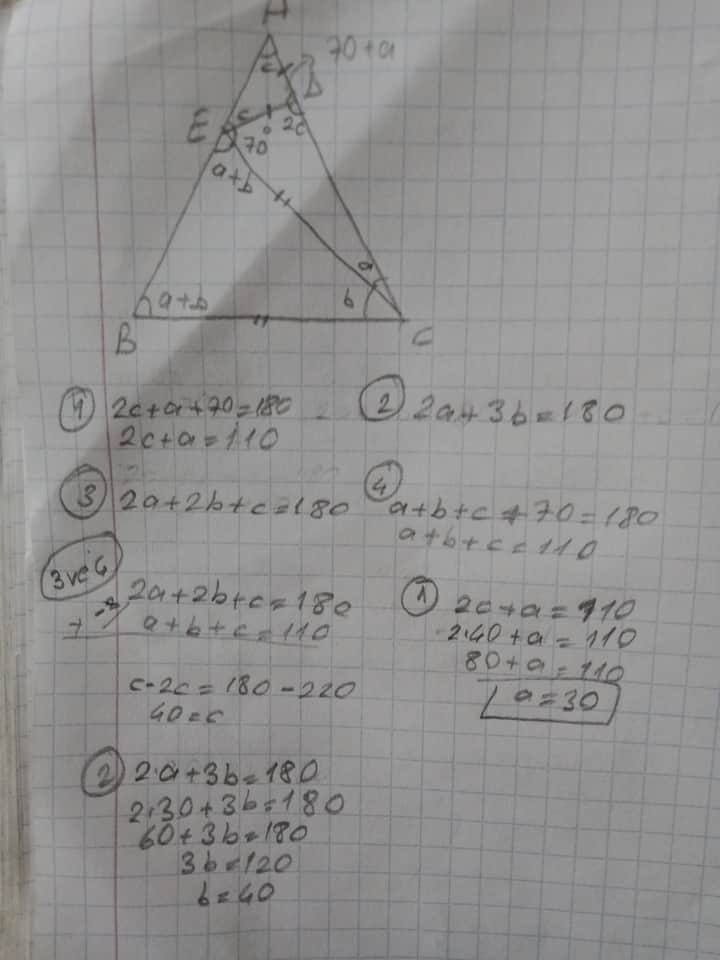 A
70+a
c
D
E
c
2c
70°
a+b
a
a+b
b
B
C
1 2c+a+70=180
2c+a=110
2 2a+3b=180
3 2a+2b+c=180
4 a+b+c+70=180
a+b+c=110
3 ve 4
2a+2b+c=180
-2/ a+b+c=110
+
c-2c=180-220
40=c
1 2c+a=110
2.40+a=110
80+a=110
a=30
2 2.a+3b=180
2.30+3b=180
60+3b=180
3b=120
b=40